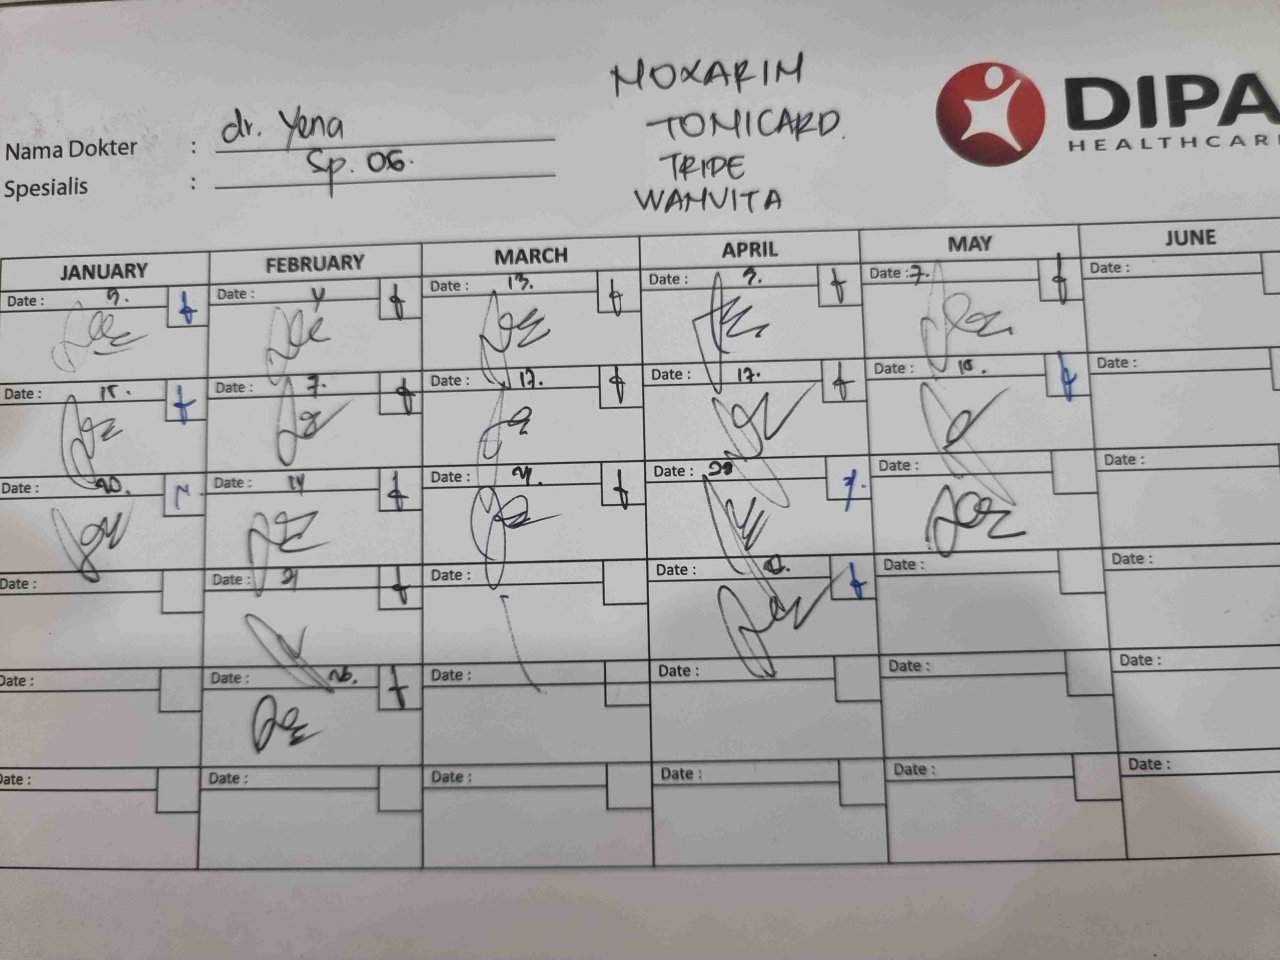 MOXARIM
TOMICARD.
TRIPE
WAMVITA
DIPA
HEALTHCAR
Nama Dokter : dr. Yena
Spesialis : Sp. OG.
JANUARY FEBRUARY MARCH APRIL MAY JUNE
Date : 9. Date : 4 Date : 13. Date : 9. Date : 7. Date :
Date : 15. Date : 7. Date : 17. Date : 17. Date : 15. Date :
Date : 20. Date : 14 Date : 21. Date : Date : Date :
Date : Date : 21 Date : Date : Date : Date :
Date : Date : 26. Date : Date : Date : Date :
Date : Date : Date : Date : Date : Date :